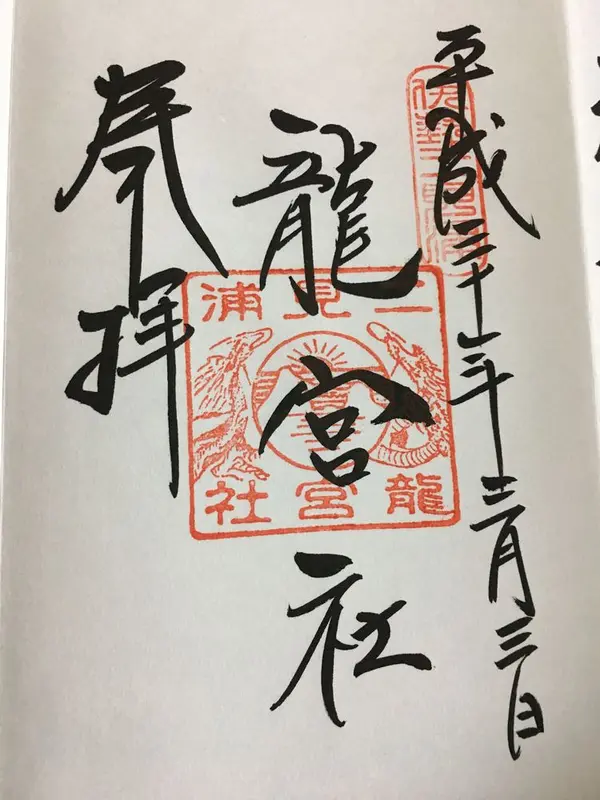 平成三十一年三月三日
伊勢二見浦
龍宮社
二見浦
龍宮社
奉拝